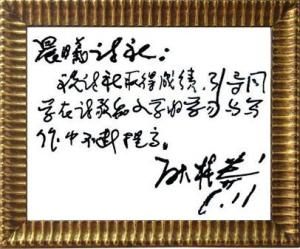 晨曦诗社：
祝诗社取得成绩，引导同
学在诗歌和文学的学习与写
作中不断提高。